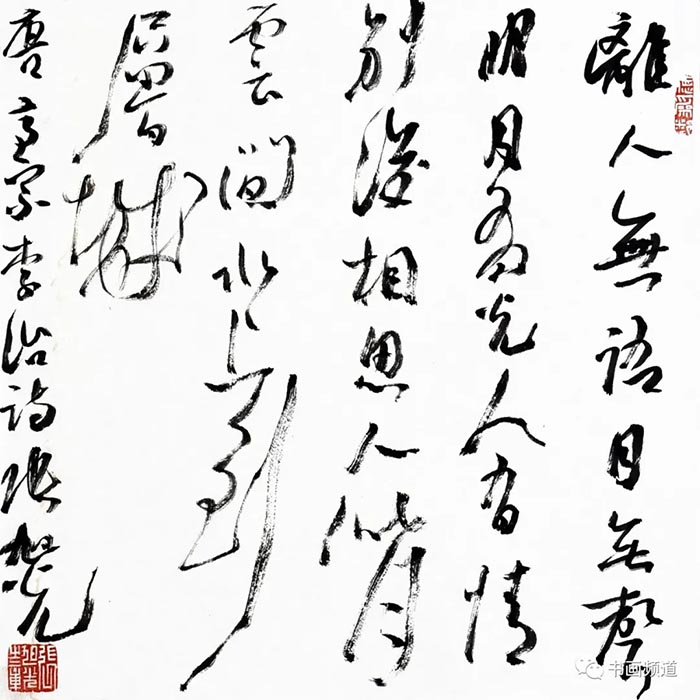 離人無語月无聲
明月有光人有情
別後相思人似月
雲間水上到
層城
唐高宗李治詩張旭光
书画频道